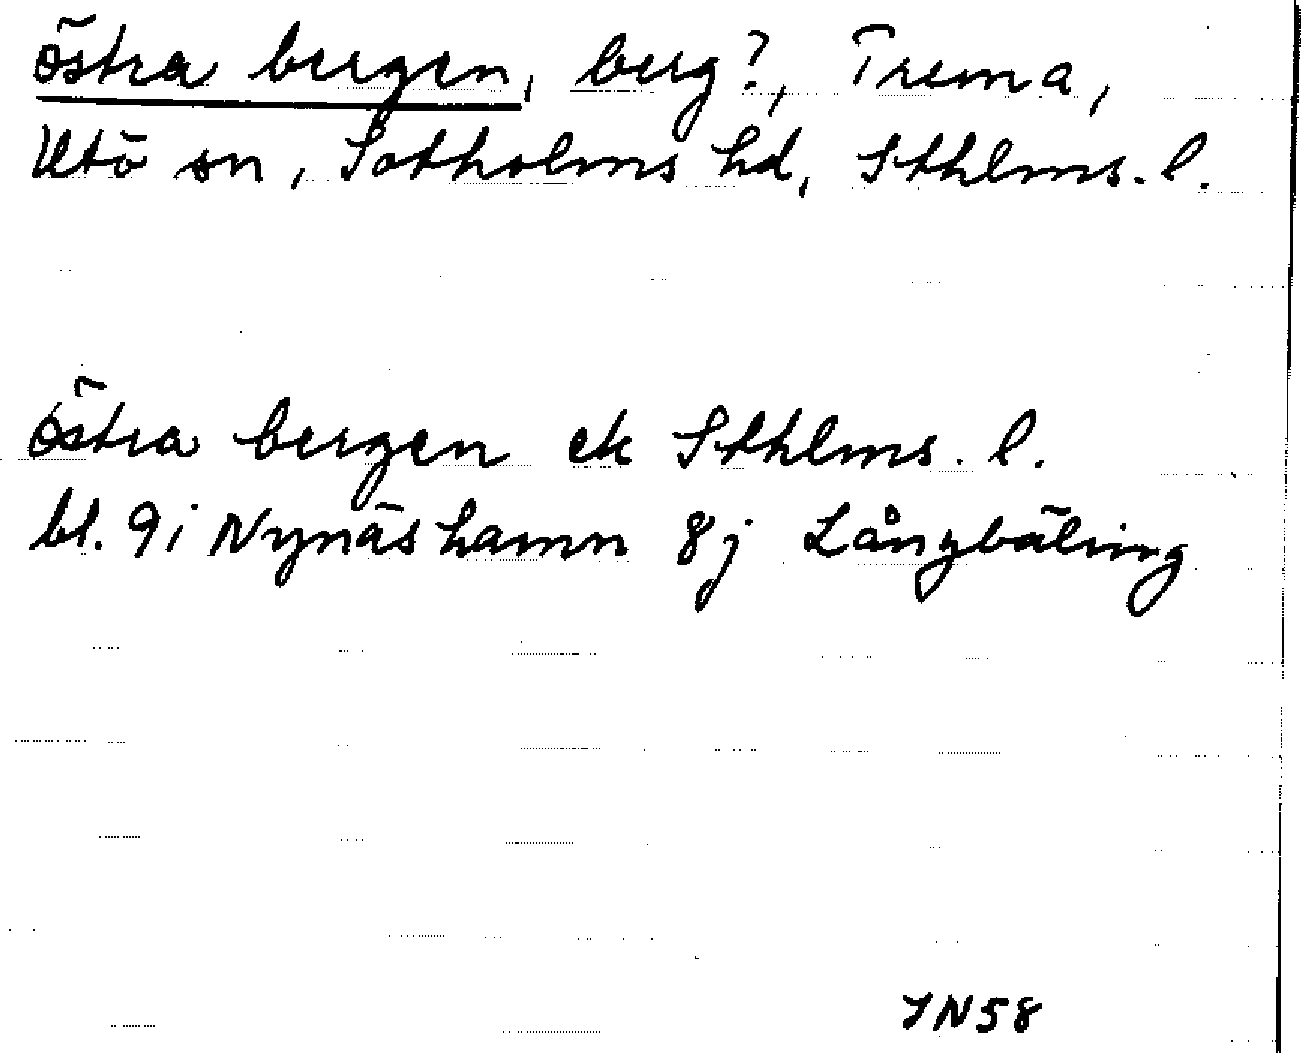 östra bergen, berg?, Trema,
Utö sn, Sotholms hd, Sthlms. l.
östra bergen ek Sthlms. l.
bl. 9i Nynäshamn 8j Långbäling
JN58